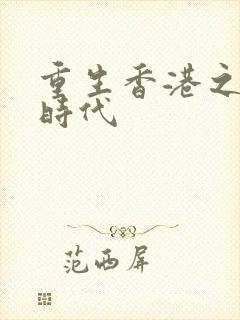 重生香港之
時代
范西屏